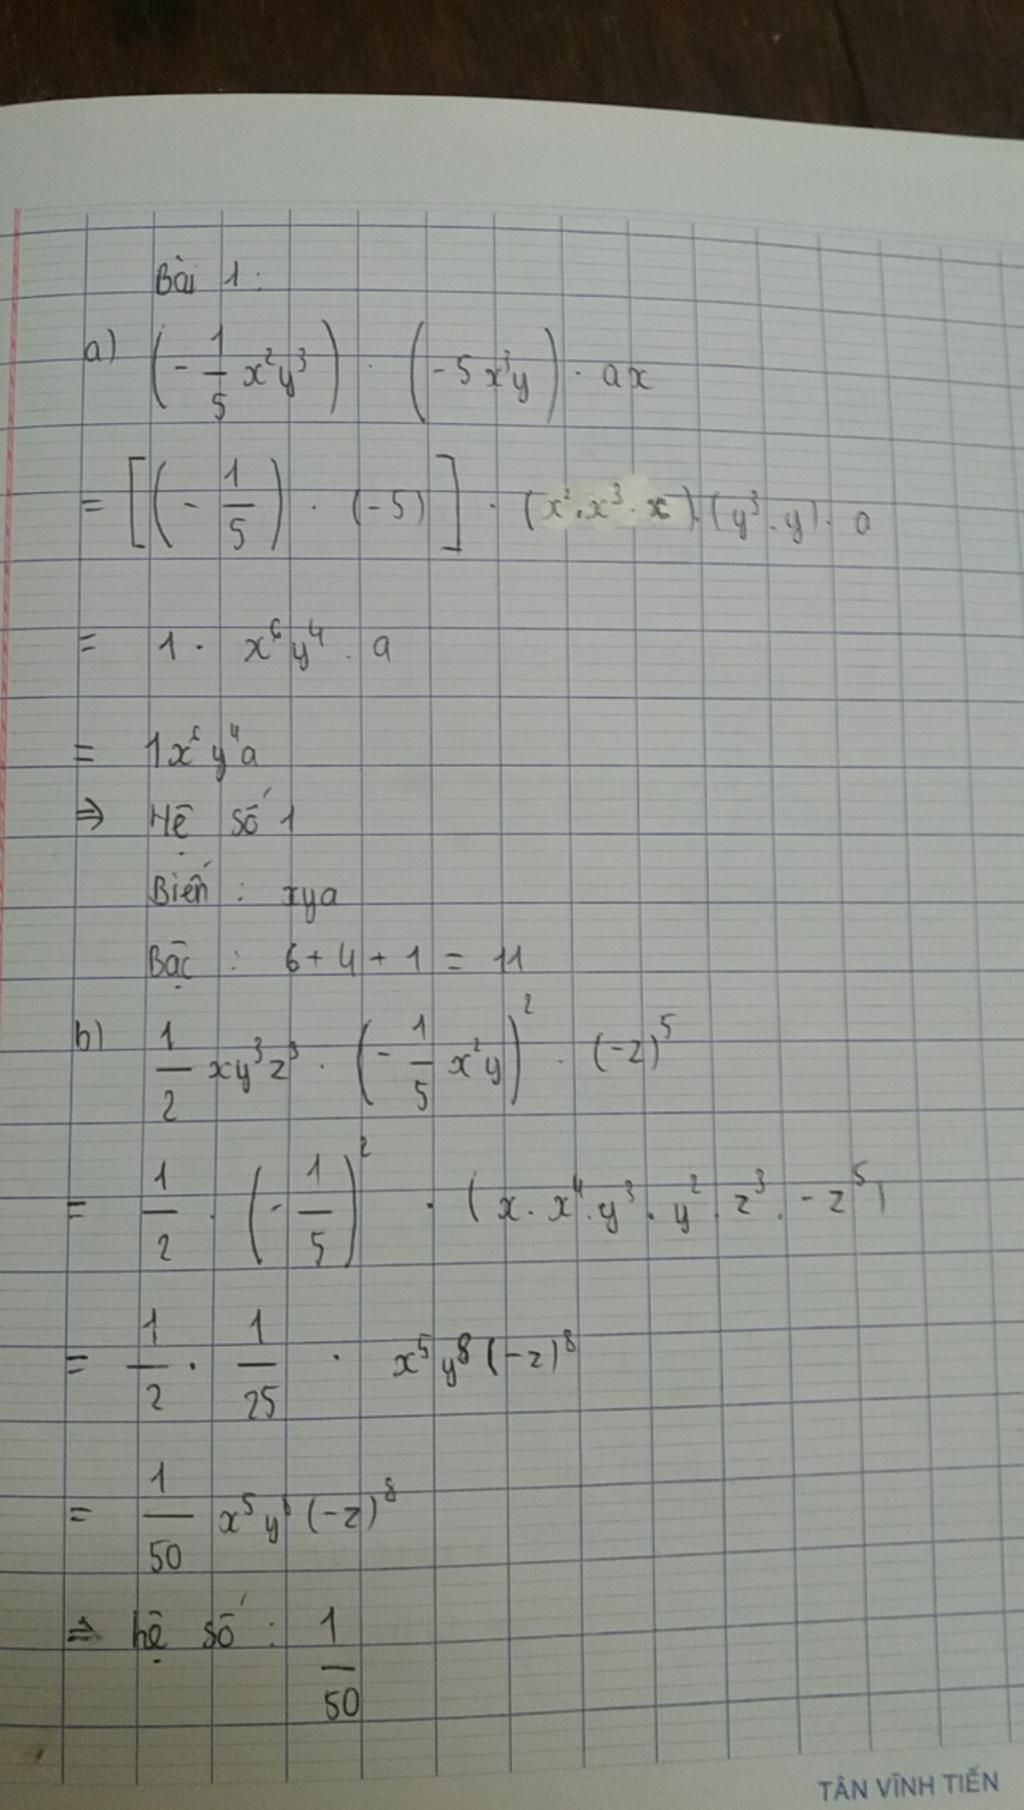 Bài 1:
a) (-1/5 x²y³) . (-5x³y) . ax
= [(-1/5) . (-5)] . (x².x³.x).(y³.y). a
= 1 . x⁶y⁴ . a
= 1x⁶y⁴a
⇒ Hệ số 1
Biến : xya
Bậc : 6+4+1 = 11
b) 1/2 xy³z³ . (-1/5 x²y)² . (-z)⁵
= 1/2 . (-1/5)² . (x.x⁴.y³.y².z³.-z⁵)
= 1/2 . 1/25 . x⁵y⁸(-z)⁸
= 1/50 x⁵y (-z)⁸
⇒ hệ số : 1/50
TÂN VĨNH TIẾN